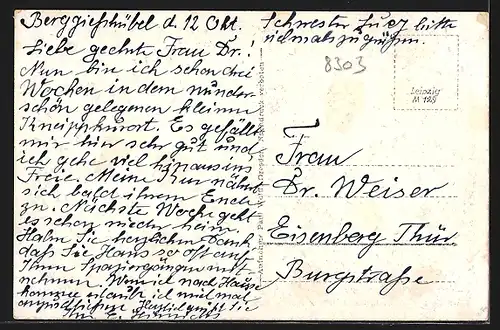 Berggießhübel d. 12 Okt.
Liebe geehrte Frau Dr.!
Nun bin ich schon drei
Wochen in dem wunder
schön gelegenen kleinen
Kneippkurort. Es gefällt
mir hier sehr gut und
ich gehe viel hinaus ins
Freie. Meine Kur nähert
sich bald ihrem Ende
zu. Nächste Woche geht
es schon wieder heim.
Haben Sie herzlichen Dank
daß Sie Hans so oft auf
Ihren Spaziergängen mit
nehmen. Wenn ich nach Hause
komme erlaube ich mich mal
Herzlich grüßt Sie
Schwester bitte
vielmals zu grüßen.
8303
Leipzig
M 128
Frau
Dr. Weiser
Eisenberg Thür.
Burgstraße